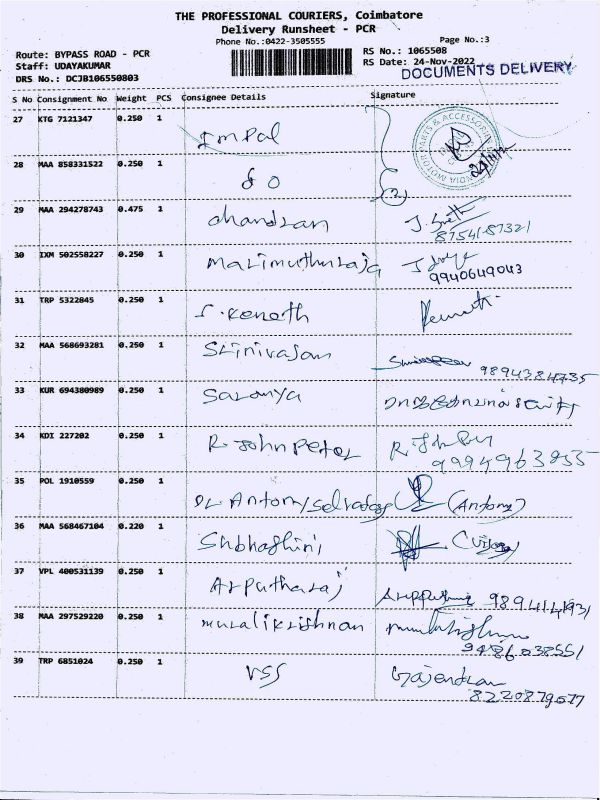 THE PROFESSIONAL COURIERS, Coimbatore
Delivery Runsheet - PCR
Phone No.:0422-3505555
Page No.:3
Route: BYPASS ROAD - PCR
RS No.: 1065508
Staff: UDAYAKUMAR
RS Date: 24-Nov-2022
DRS No.: DCJB106550803
DOCUMENTS DELIVERY
S No Consignment No Weight PCS Consignee Details Signature
27 KTG 7121347 0.250 1 Impal
28 MAA 858331522 0.250 1 do
29 MAA 294278743 0.475 1 chandran
8754187321
30 IXM 502558227 0.250 1 Marimuthuraja
9940649043
31 TRP 5322845 0.250 1 r. Kenath
32 MAA 568693281 0.250 1 Srinivasan
33 KUR 694380989 0.250 1 Saranya
34 KDI 227202 0.250 1 R John Peter
35 POL 1910559 0.250 1 Dr Antony (Antony)
36 MAA 568467104 0.220 1 Shbhashini
37 VPL 400531139 0.250 1 Arputharaj
38 MAA 297529220 0.250 1 muralikrishnan
9486038551
39 TRP 6851024 0.250 1 VSS Gajendran